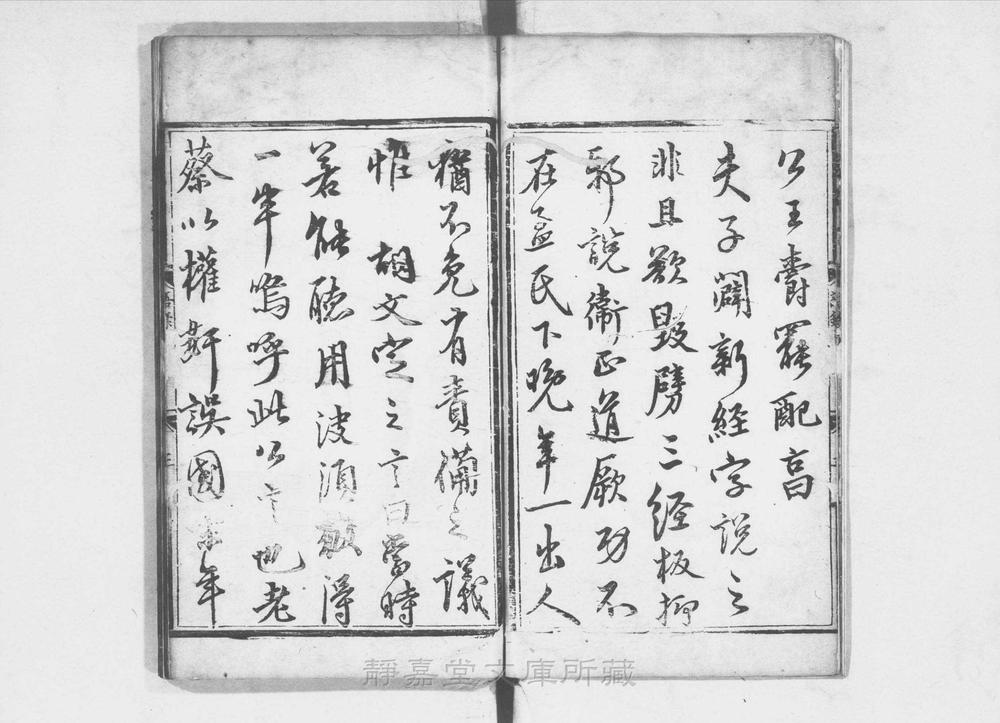 公王爵罷配享
夫子闢新經字說之
非且欲毀劈三經板抑
邪說衛正道厥功不
在孟氏下晚年一出人
猶不免有責備之議
惟胡文定之言曰當時
若能聽用決須救得
一半嗚呼此公言也老
蔡以權奸誤國當年
靜嘉堂文庫所藏